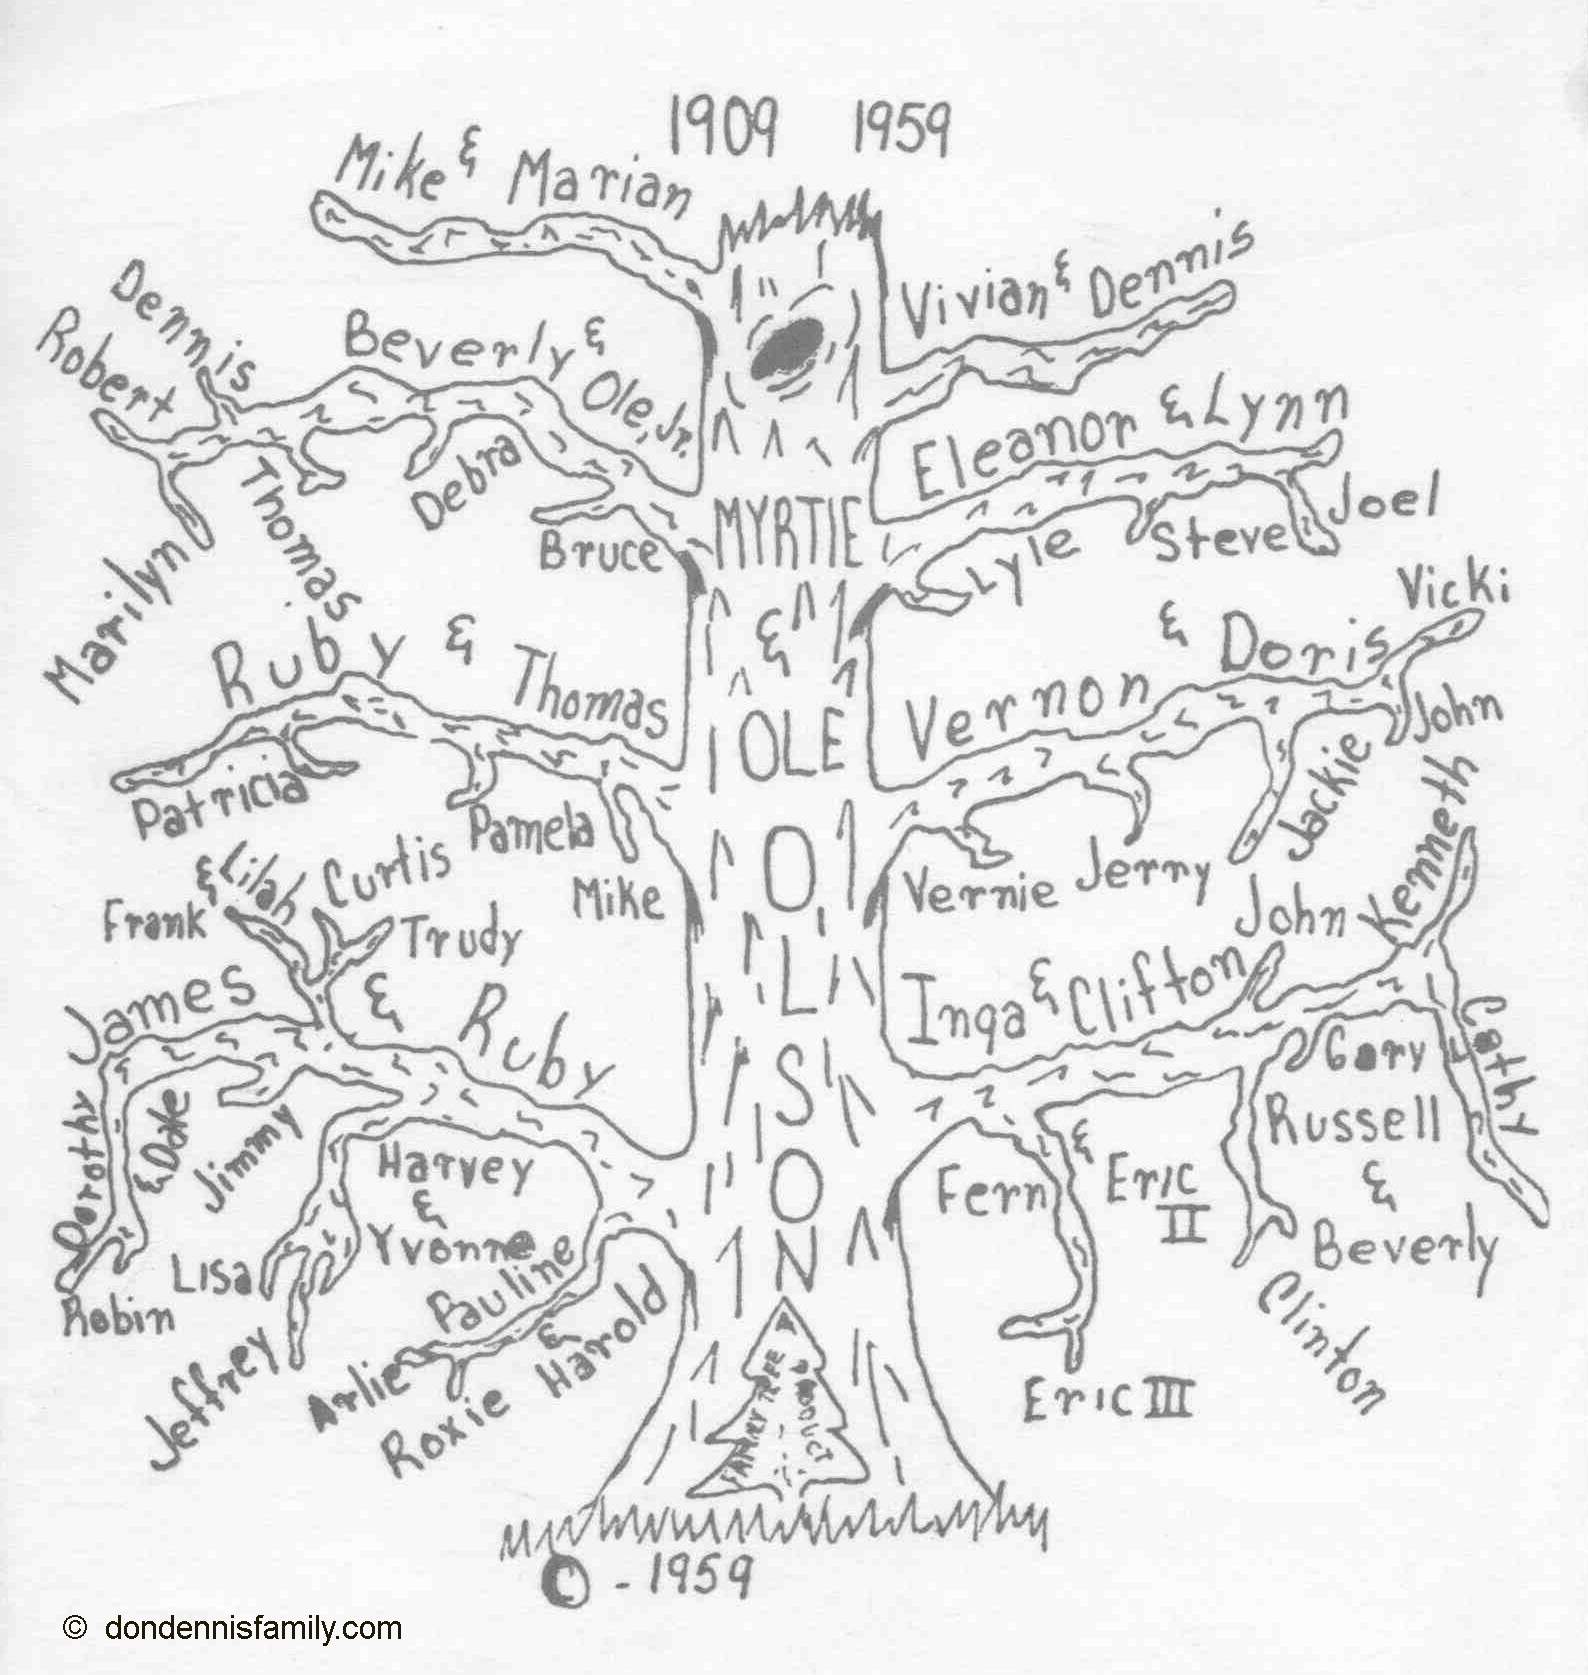 1909 1959
Mike & Marian
Vivian & Dennis
Dennis
Robert
Beverly & Ole, Jr.
Debra
Bruce
Thomas
Marilyn
Eleanor & Lynn
Joel
Steve
Lyle
MYRTIE
&
OLE
OLSON
Ruby & Thomas
Patricia
Pamela
Mike
Vernon & Doris
Vicki
John
Jackie
Jerry
Vernie
Frank & Lilah
Curtis
Trudy
James & Ruby
Dorothy & Dale
Robin
Jimmy
Harvey & Yvonne
Lisa
Jeffrey
Pauline & Harold
Arlie
Roxie
Inga & Clifton
John
Kenneth
Cathy
Gary
Russell & Beverly
Clinton
Fern & Eric II
Eric III
FAMILY TREE PRODUCT
© - 1959
© dondennisfamily.com